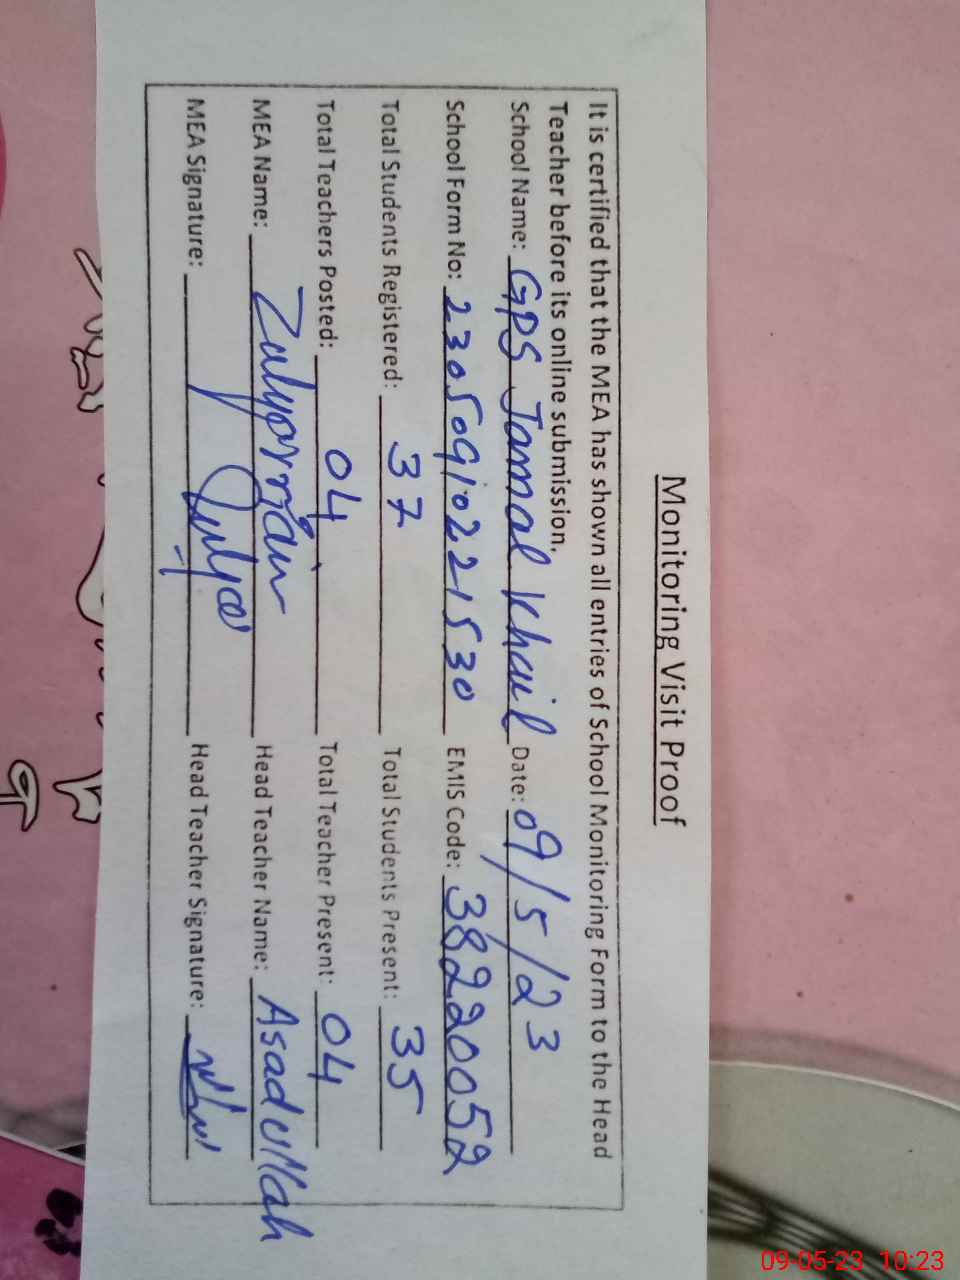 Monitoring Visit Proof
It is certified that the MEA has shown all entries of School Monitoring Form to the Head
Teacher before its online submission.
School Name: GPS Jamal Khail Date: 09/5/23
School Form No: 23050910221530 EMIS Code: 38220052
Total Students Registered: 37 Total Students Present: 35
Total Teachers Posted: 04 Total Teacher Present: 04
MEA Name: Head Teacher Name: Asadullah
MEA Signature: Head Teacher Signature:
09-05-23 10:23